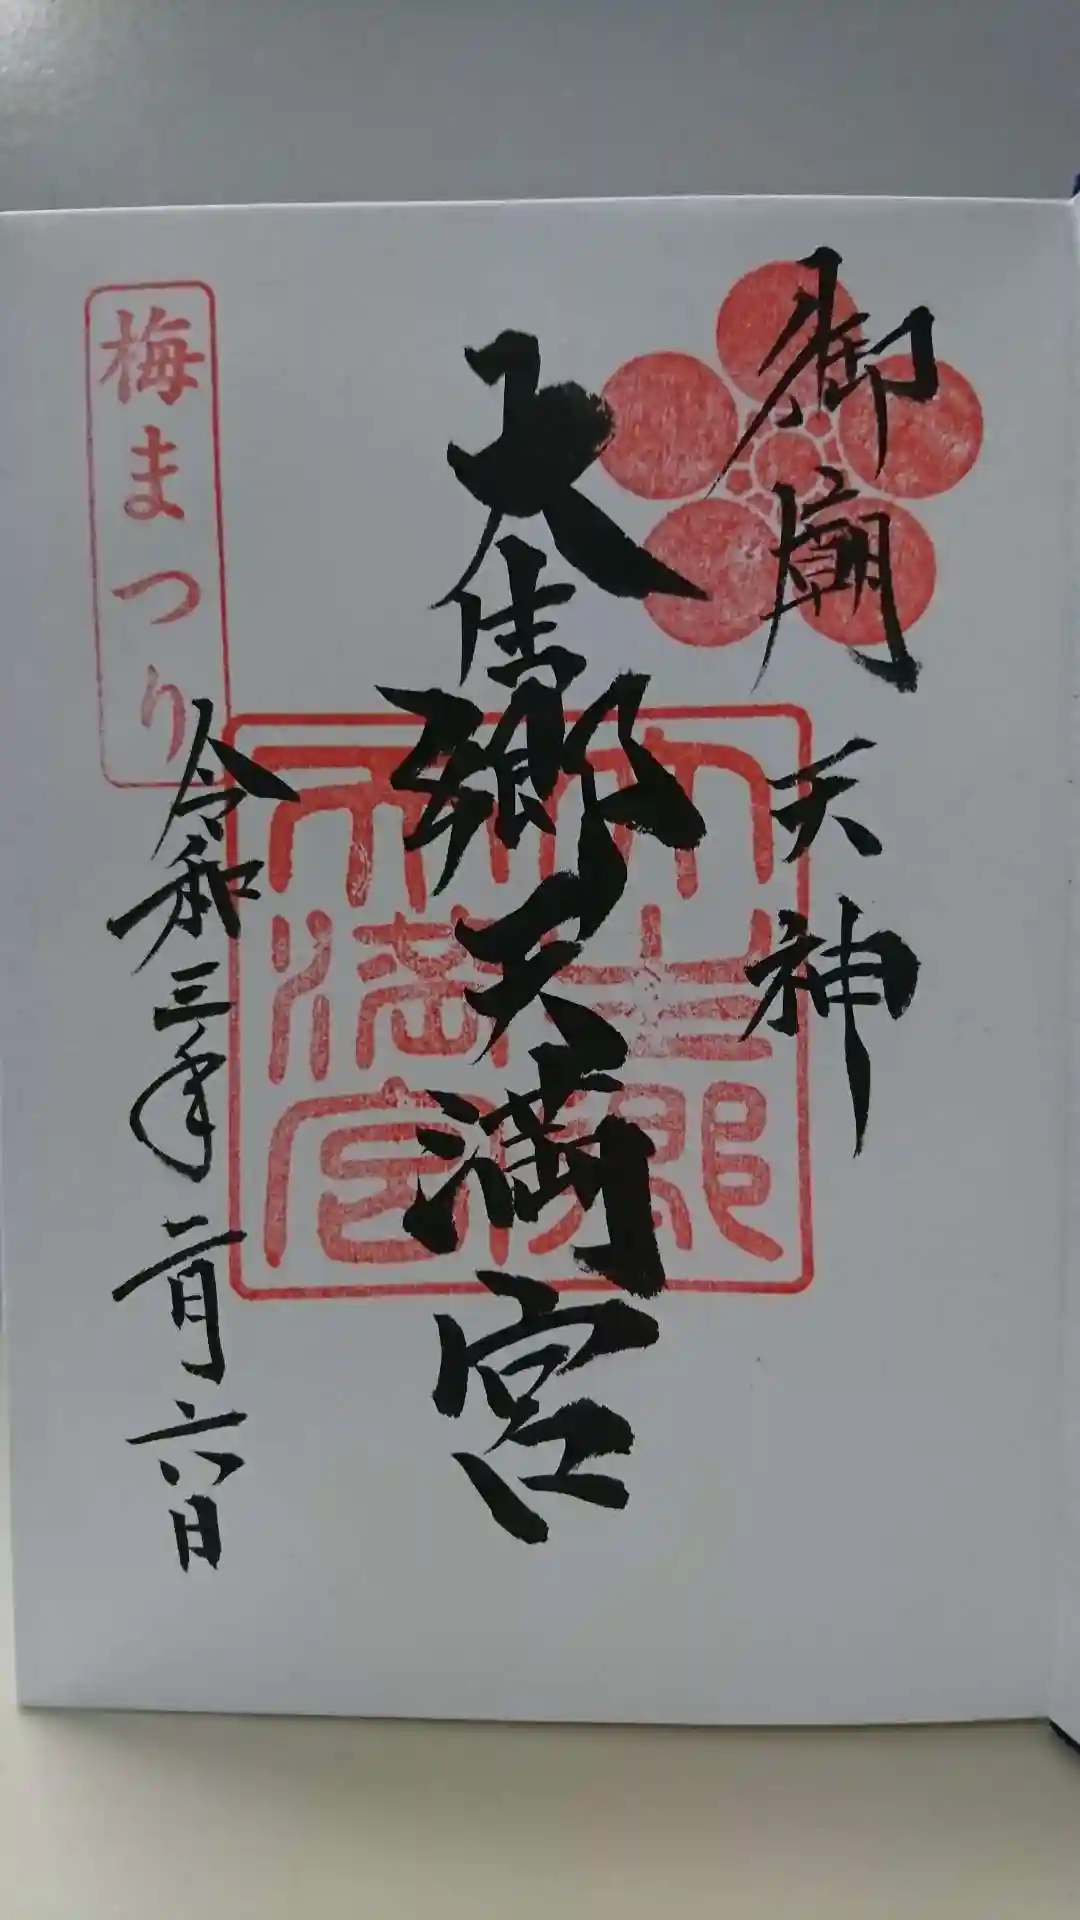 御廟天神
大生郷天満宮
令和三年二月六日
梅まつり
大生郷
天満宮